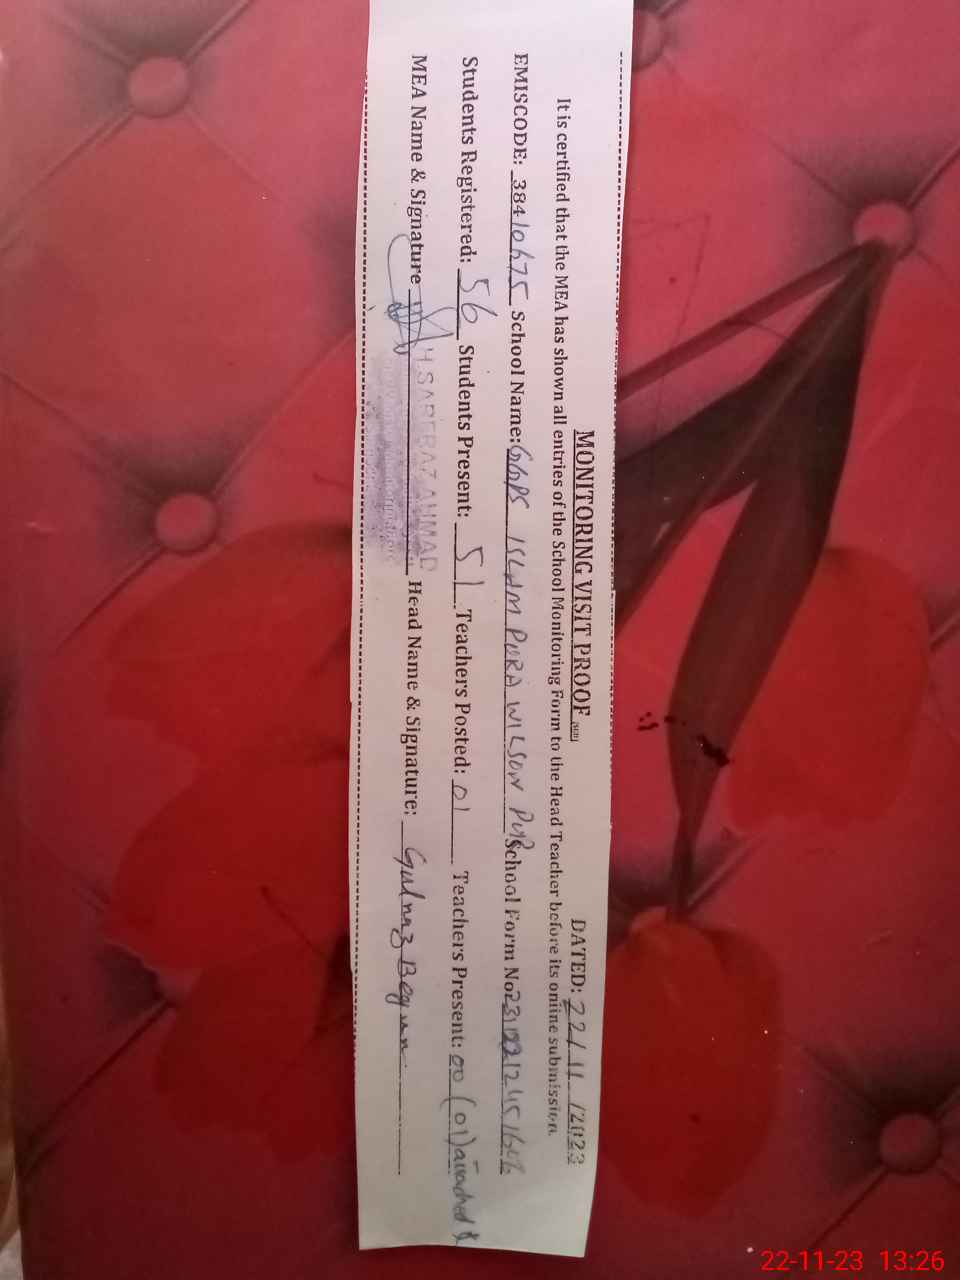 MONITORING VISIT PROOF
DATED: 22/11/2023
It is certified that the MEA has shown all entries of the School Monitoring Form to the Head Teacher before its online submission.
EMISCODE: 38410675 School Name: GGPS ISLAM PURA WILSON PUR School Form No:
Students Registered: 56 Students Present: 51 Teachers Posted: 01 Teachers Present: 00 (01) attached
MEA Name & Signature SARFRAZ AHMAD Head Name & Signature: Gulnaz Begum
22-11-23 13:26